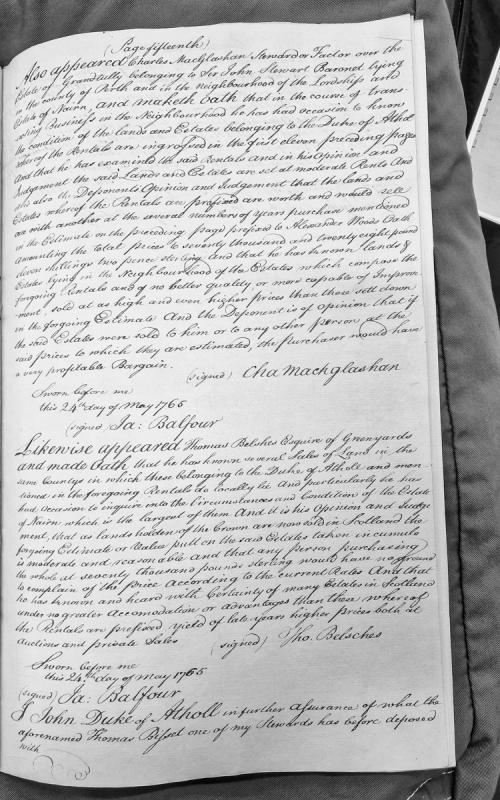 (Page fifteenth)
Also appeared Charles MacGlashan Steward or Factor over the
Estate of Grandtully belonging to Sir John Stewart Baronet lying
in the county of Perth and in the neighbourhood of the Lordships and
Estate of Nairn, and maketh oath that in the course of trans-
acting Business in the Neighbourhood he has had occasion to know
the condition of the lands and Estates belonging to the Duke of Athol
whereof the Rentals are ingrossed in the first eleven preceding pages
And that he has examined the said Rentals and in his Opinion and
Judgement the said Lands and Estates are set at moderate Rents And
its also the Deponents Opinion and Judgement that the lands and
Estates whereof the Rentals are prefixed are worth and would sell
one with another at the several numbers of years purchase mentioned
in the Estimate on the preceding page prefixed to Alexander Woods Oath
amounting the total prices to seventy thousand and twenty eight pound
eleven shillings two pence sterling and that he has known lands &
Estates lying in the Neighbourhood of the Estates which compose the
forgoing Rentals and of no better quality or more capable of Improve-
ment, sold at as high and even higher prices than those sett down
in the forgoing Estimate And the Deponent is of opinion that if
the said Estates were sold to him or to any other person at the
said prices to which they are estimated, the purchaser would have
a very profitable Bargain.
(signed) Cha Mackglashan
Sworn before me
this 24th day of May 1765
(signed) Ja: Balfour
Likewise appeared Thomas Belshes Esquire of Greenyards
and made Oath that he has known several Sales of Land in the
same Countys in which these belonging to the Duke of Atholl and men-
tioned in the foregoing Rentals do locally lie And particularly he has
had occasion to inquire into the Circumstances and Condition of the Estate
of Nairn which is the largest of them And it is his Opinion and Judge
ment, that as lands holden of the Crown are now sold in Scotland the
forgoing Estimate or Value putt on the said Estates taken in cumulo
is moderate and reasonable and that any person purchasing
the whole at seventy thousand pounds sterling would have no ground
to complain of the price according to the current Rates And that
he has known and heard with Certainty of many Estates in Scotland
under no greater Accomodation or advantages than these whereof
the Rentals are prefixed yield of late years higher prices both at
Auctions and private Sales (signed) Tho. Belsches
Sworn before me
this 24th day of May 1765
(signed) Ja: Balfour
I John Duke of Atholl in further assurance of what the
aforenamed Thomas Bisset one of my Stewards has before deposed
with